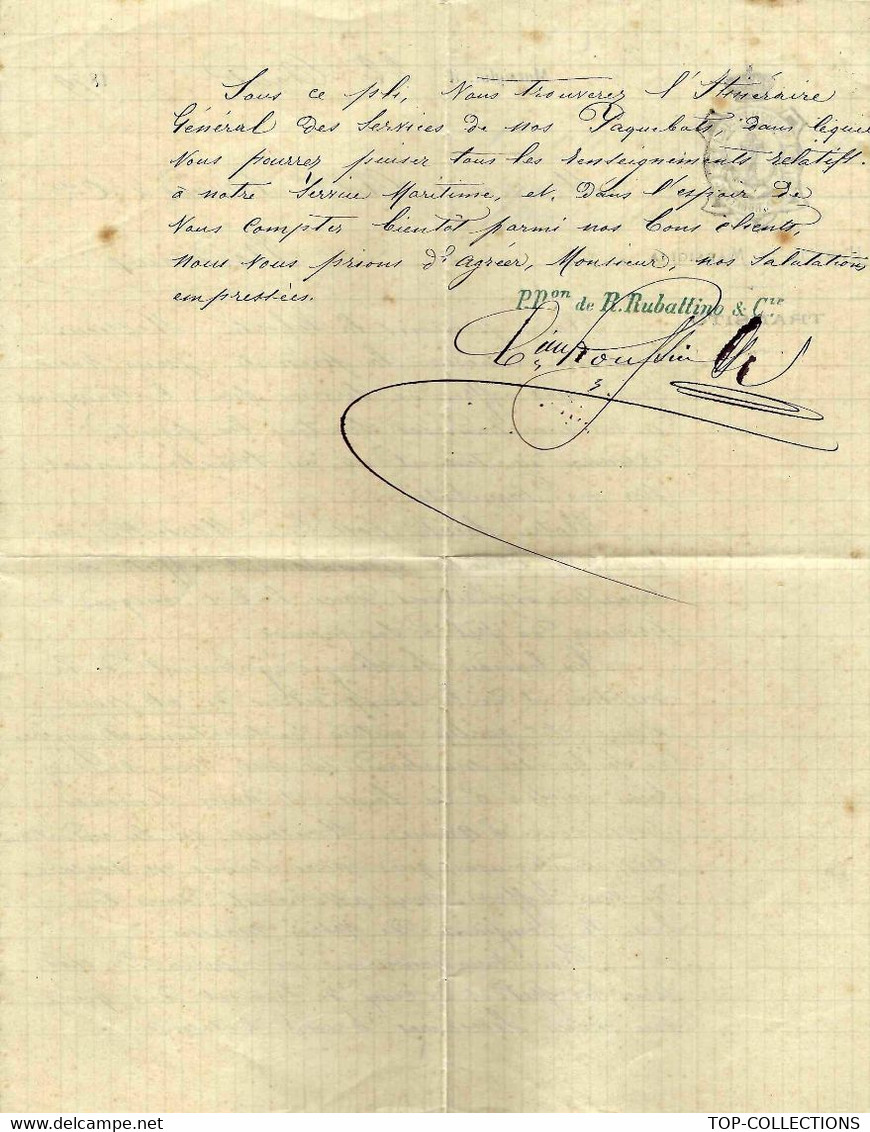 Sous ce pli, Vous trouverez l'Itinéraire
Général des Services de nos Paquebots, dans lequel
Vous pourrez puiser tous les renseignements relatifs
à notre Service Maritime, et, dans l'espoir de
Vous compter bientôt parmi nos bons clients,
nous Vous prions d'agréer, Monsieur, nos salutations
empressées.
P.Pon de R. Rubattino & Cie
TOP-COLLECTIONS